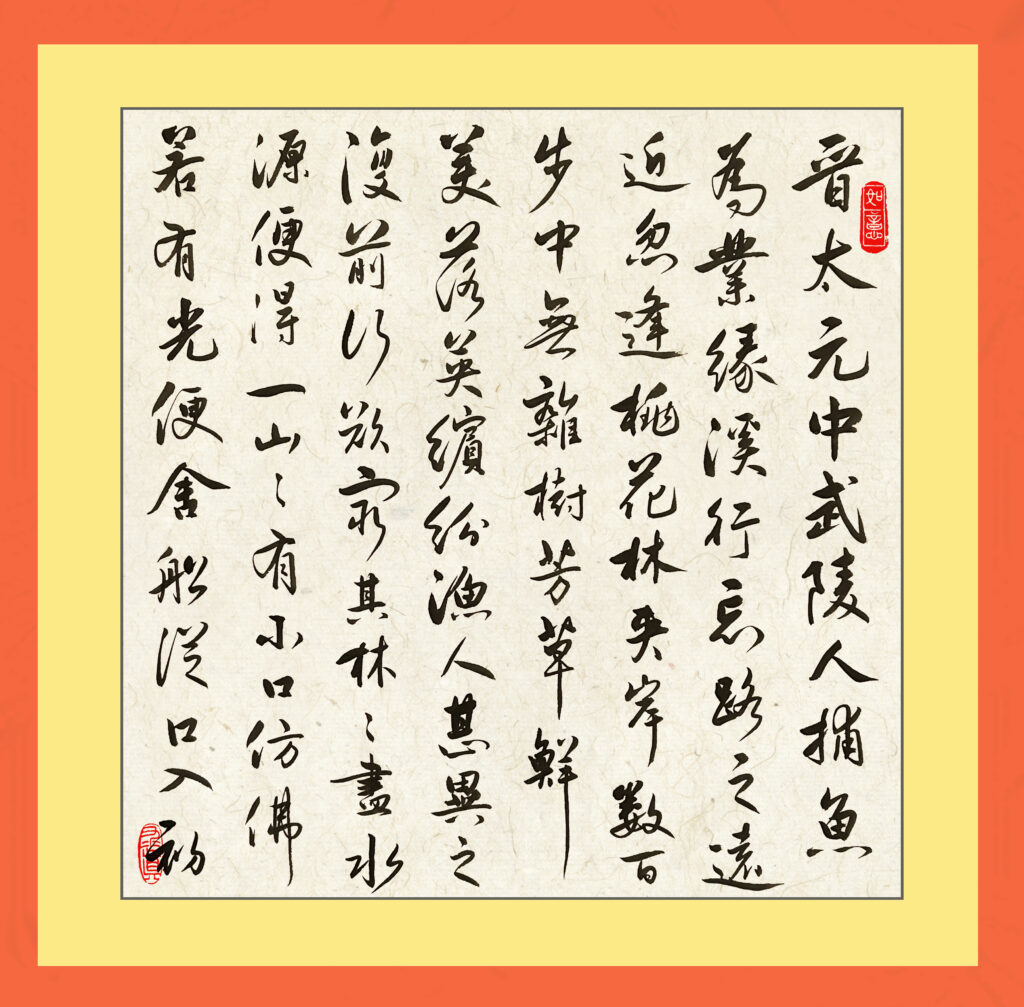 如意
晋太元中武陵人捕魚
為業緣溪行忘路之遠
近忽逢桃花林夹岸數百
步中無雜樹芳草鮮
美落英繽紛漁人甚異之
復前行欲窮其林〻盡水
源便得一山〻有小口仿佛
若有光便舍船從口入初